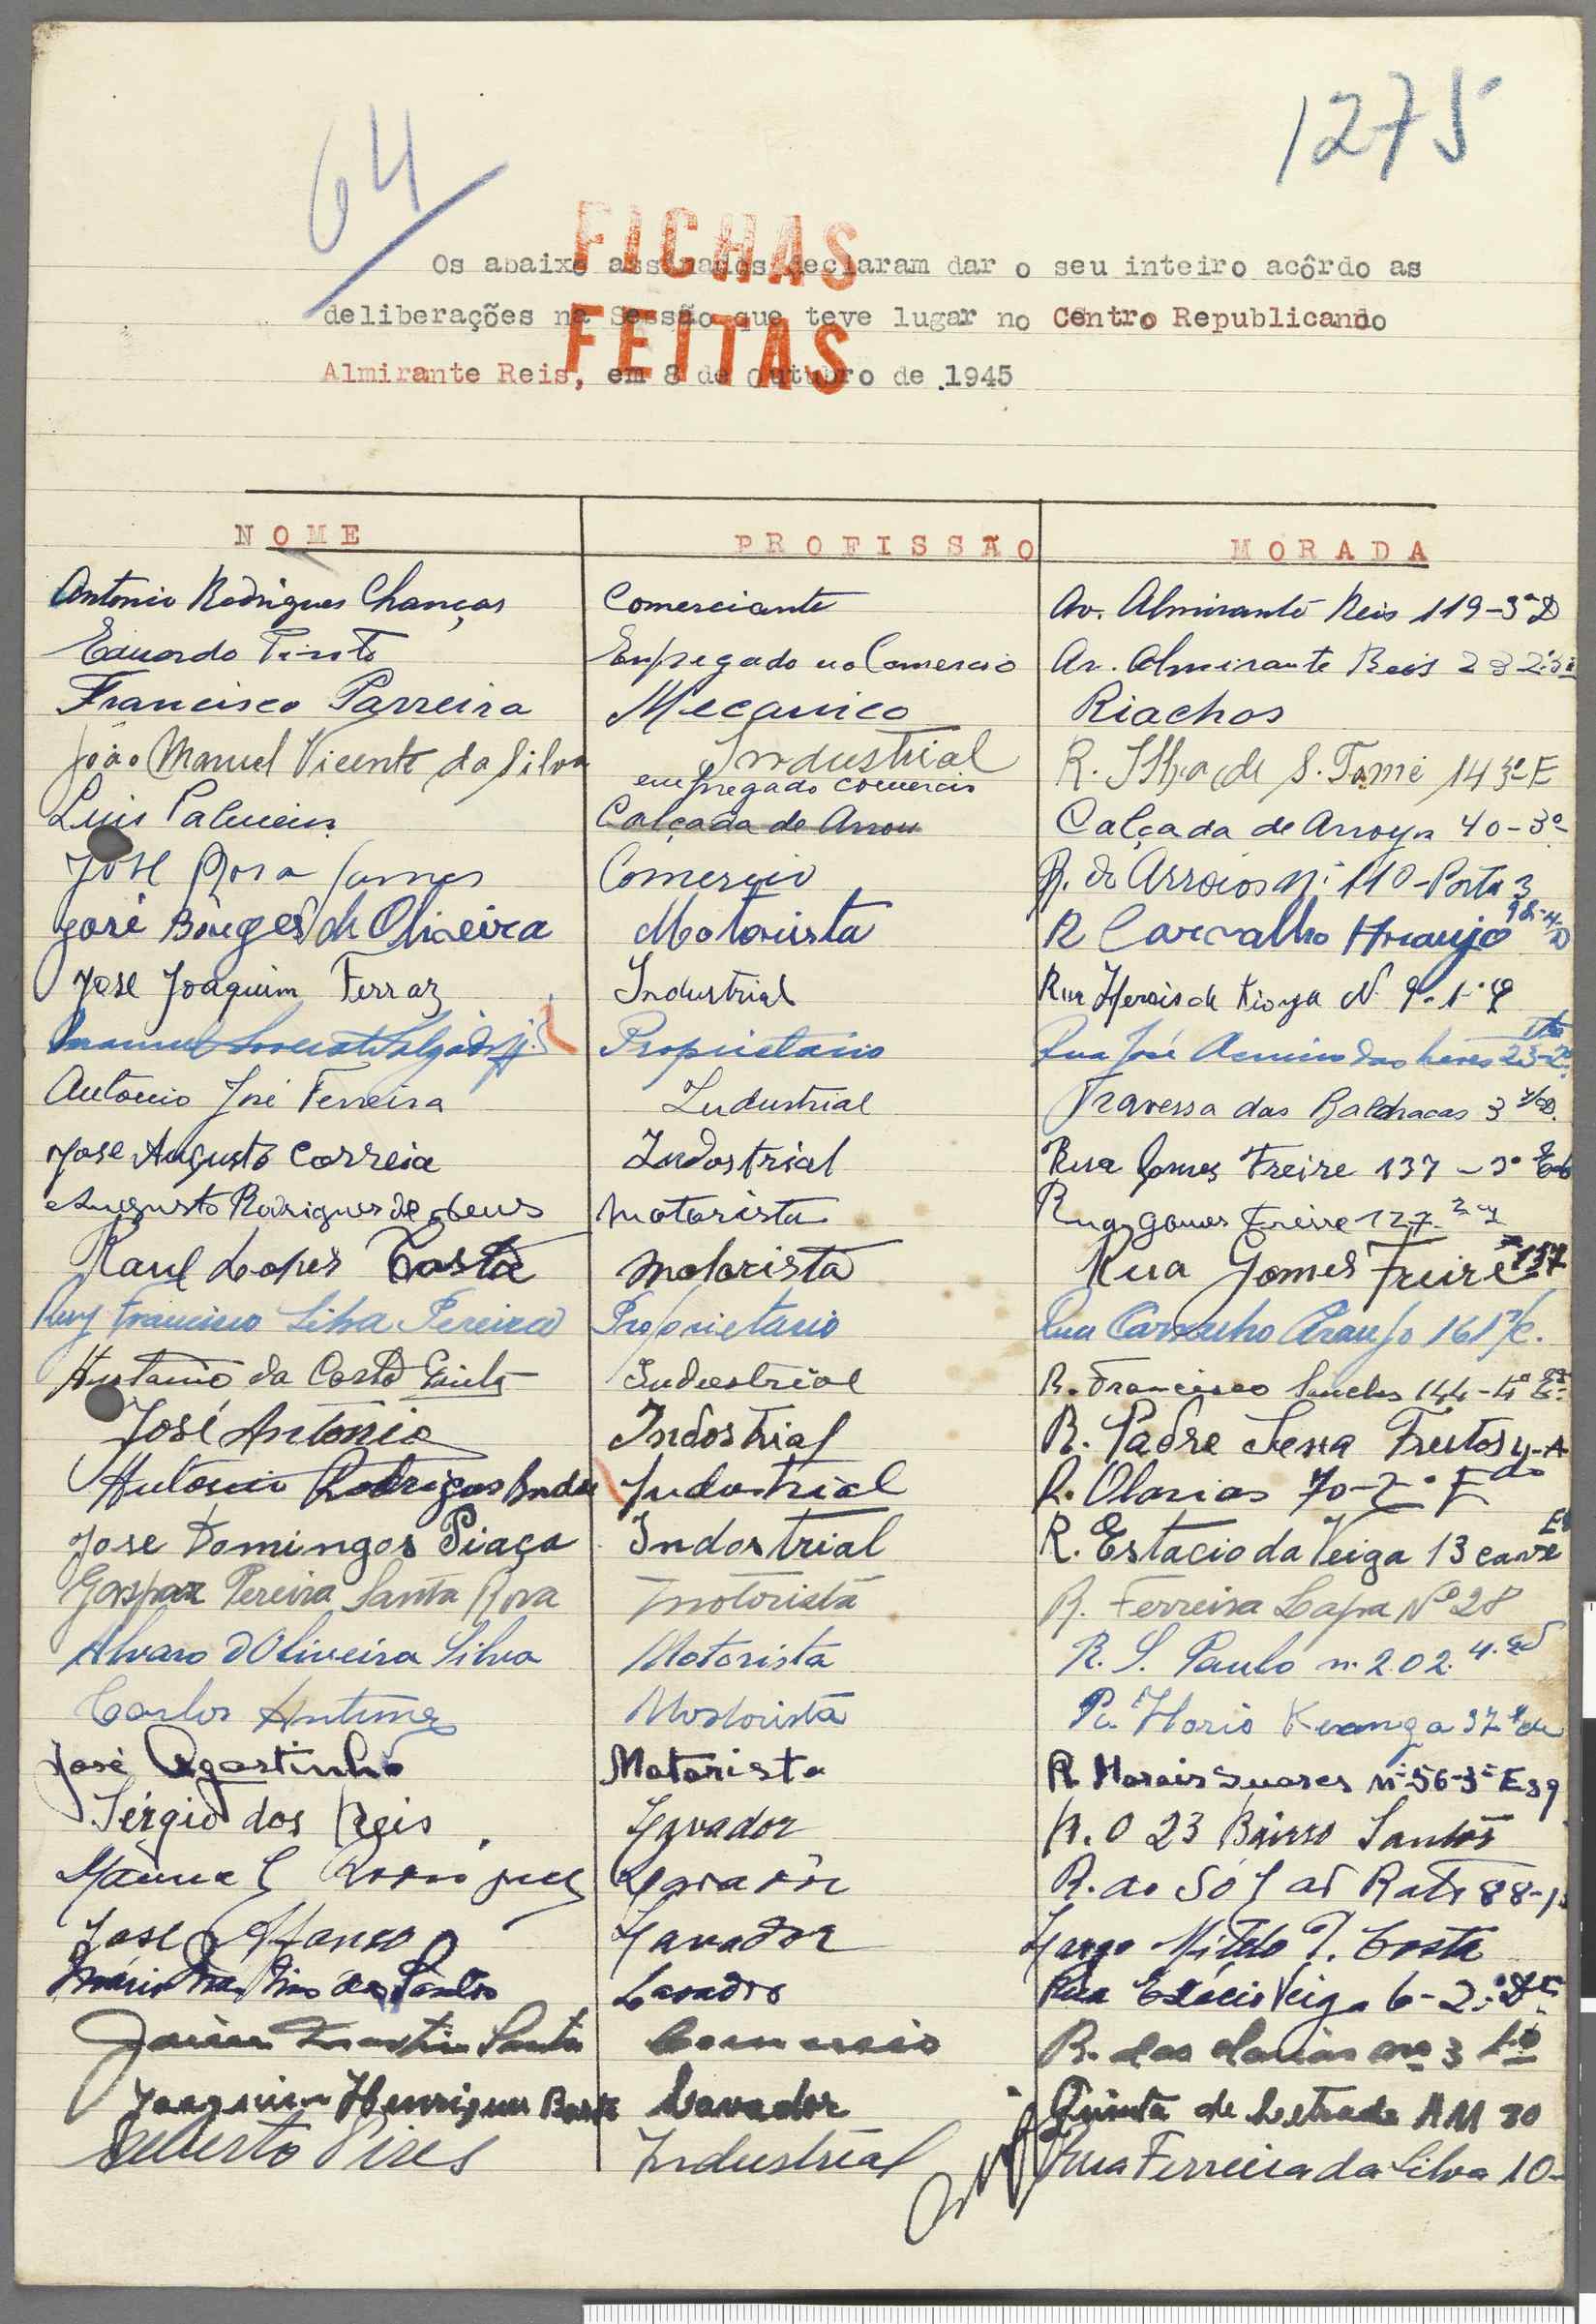 64
1275
FICHAS
FEITAS
Os abaixo assinados declaram dar o seu inteiro acôrdo as
deliberações na Sessão que teve lugar no Centro Republicando
Almirante Reis, em 8 de outubro de 1945
NOME PROFISSÃO MORADA
Antonio Rodrigues Chanças Comerciante Av. Almirante Reis 119-3º D
Eduardo Pinto Empregado no Comercio Av. Almirante Reis 232
Francisco Parreira Mecanico Riachos
João Manuel Vicente da Silva Industrial R. Ilha de S. Tomé 14 3º E
empregado comercio
Luis Calçada de Arroyos 40-3º
José Rosa Comercio R. de Arroios nº 110-Porta 3
José Borges de Oliveira Motorista R Carvalho Araujo 98-4º D
Jose Joaquim Ferraz Industrial Rua Herois de Kionga N. 9-1º
Manuel Proprietario Rua José
Antonio José Ferreira Industrial Travessa das Baldracas 3
Jose Augusto Correia Indostrial Rua Gomes Freire 137-3º
Augusto Rodrigues de Deus Motorista Rua gomes Freire 127
Raul Lopes Costa Motorista Rua Gomes Freire 137
Ruy Francisco Silva Pereira Proprietario Rua Carvalho Araujo 161
da Costa Industrial R. Francisco Sanches 144-4º
José António Indostrial R. Padre Sena Freitas 4-A
Antonio Rodrigues Industrial R. Olarias 70-2º
Jose Domingos Piaça Indostrial R. Estacio da Veiga 13 cave
Gaspar Pereira Santa Rosa Motorista R. Ferreira Lapa Nº 28
Alvaro d'Oliveira Silva Motorista R. S. Paulo n. 202. 4.
Carlos Antunes Motorista 37
José Agostinho Motorista R. Morais Suares nº 56-3º Esq
Sérgio dos Reis Lavador R. O 23 Bairro Santos
Manuel Lavador R. do Sól ao Rato 88-1
José Afonso Lavador Costa
Mario Martins dos Santos Lavador Rua Estácio Veiga 6-2º
Martins Santos Comercio R. das Olarias nº 3 1º
Joaquim Henriques Lavador Quinta do Letrado AM 20
Alberto Pires Industrial Rua Ferreira da Silva 10